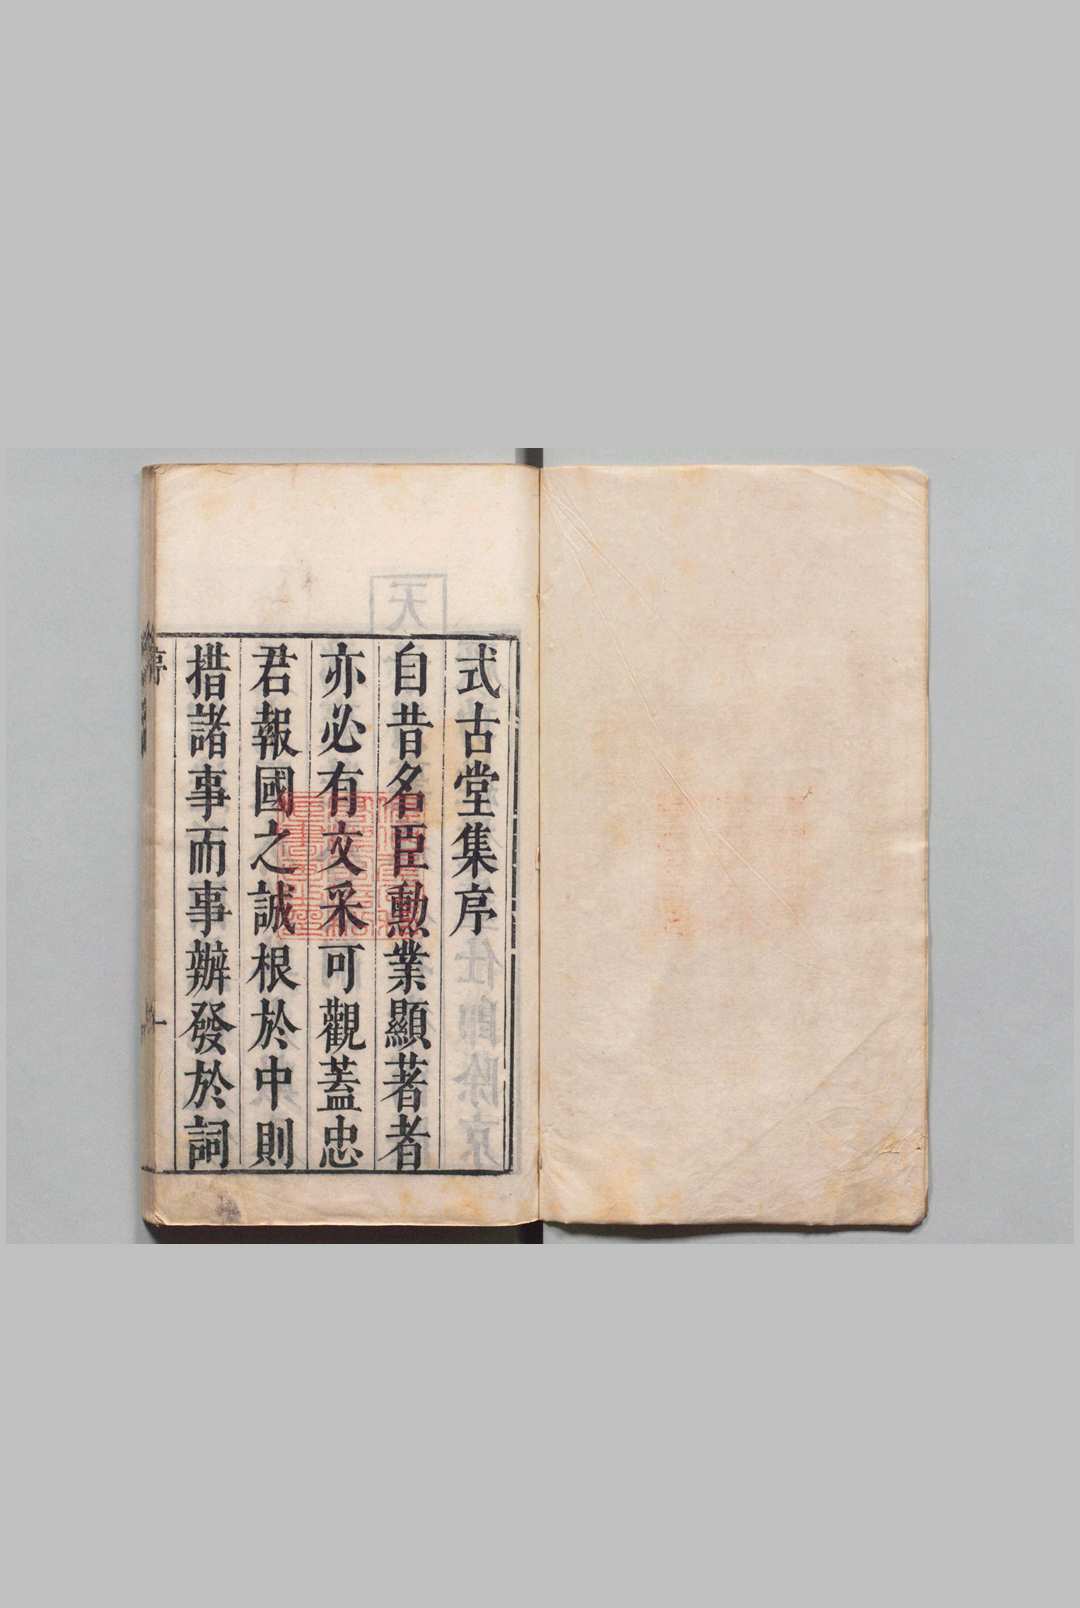 式古堂集序
自昔名臣勲業顯著者
亦必有文采可觀蓋忠
君報國之誠根於中則
措諸事而事辦發於詞
序